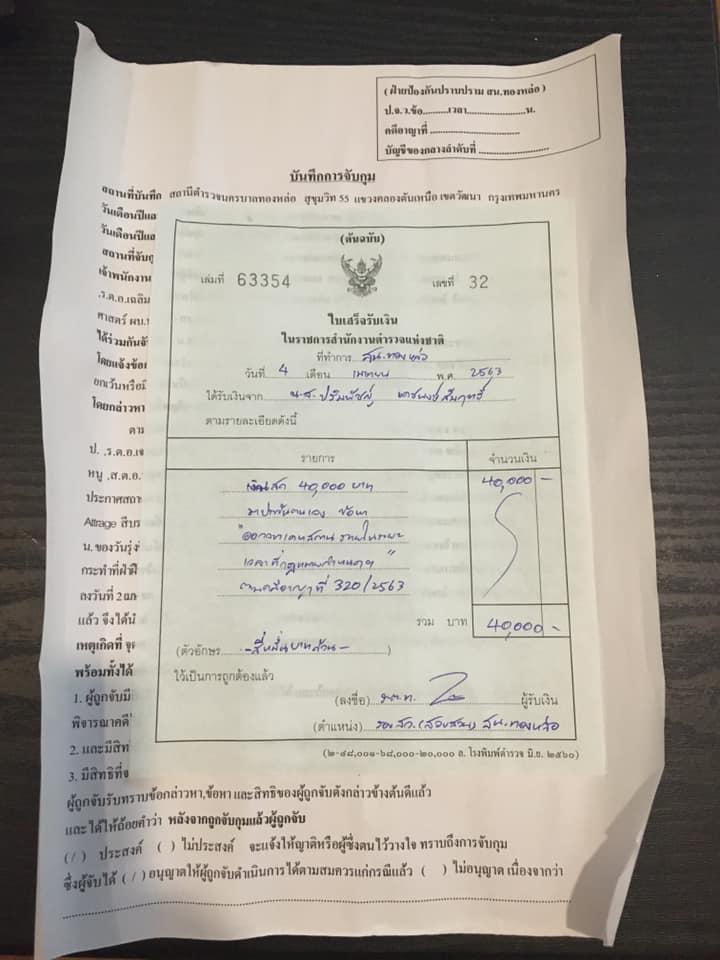 ( ฝ่ายป้องกันปราบปราม สน.ทองหล่อ )
ป.จ.ว.ข้อ.........เวลา....................น.
คดีอาญาที่ ..............................
บัญชีของกลางลำดับที่ ........................
บันทึกการจับกุม
สถานที่บันทึก สถานีตำรวจนครบาลทองหล่อ สุขุมวิท 55 แขวงคลองตันเหนือ เขตวัฒนา กรุงเทพมหานคร
วันเดือนปีและ
วันเดือนปีและ
สถานที่จับกุ
เจ้าพนักงาน
.ร.ต.อ.เฉลิม
ศาสตร์ ผบ.
ได้ร่วมกันจั
โดยแจ้งข้อ
ยกเว้นหรือมี
โดยกล่าวหา
ตาม
ป. .ร.ต.อ.เ
หนู .ส.ต.อ.
ประกาศสถา
Attrage สีบร
น. ของวันรุ่ง
กระทำที่ฝ่าฝื
ลงวันที่ 2 เม
แล้ว จึงได้นำ
เหตุเกิดที่ จุด
พร้อมทั้งได้
1. ผู้ถูกจับมี
พิจารณาคดี
2. และมีสิทธิ
3. มีสิทธิที่จ
(ต้นฉบับ)
เล่มที่ 63354 เลขที่ 32
ใบเสร็จรับเงิน
ในราชการสำนักงานตำรวจแห่งชาติ
ที่ทำการ สน.ทองหล่อ
วันที่ 4 เดือน เมษายน พ.ศ. 2563
ได้รับเงินจาก น.ส. ปริมพัชญ์
ตามรายละเอียดดังนี้
รายการ จำนวนเงิน
เงินสด 40,000 บาท 40,000 -
มาประกันตนเอง ข้อหา
"ออกจากเคหสถาน ภายในระยะ
เวลาที่กฎหมายกำหนดฯ"
ตามคดีอาญาที่ 320/2563
รวม บาท 40,000 -
(ตัวอักษร -สี่หมื่นบาทถ้วน- )
ไว้เป็นการถูกต้องแล้ว
(ลงชื่อ) ผู้รับเงิน
(ตำแหน่ง) รอง สว.(สอบสวน) สน.ทองหล่อ
(๒-๔๘,๐๐๑-๖๘,๐๐๐-๒๐,๐๐๐ ล. โรงพิมพ์ตำรวจ มิ.ย. ๒๕๖๐)
ผู้ถูกจับรับทราบข้อกล่าวหา,ข้อหา และสิทธิของผู้ถูกจับดังกล่าวข้างต้นดีแล้ว
และ ได้ให้ถ้อยคำว่า หลังจากถูกจับกุมแล้วผู้ถูกจับ
( / ) ประสงค์ ( ) ไม่ประสงค์ จะแจ้งให้ญาติหรือผู้ซึ่งตนไว้วางใจ ทราบถึงการจับกุม
ซึ่งผู้จับได้ ( / ) อนุญาตให้ผู้ถูกจับดำเนินการได้ตามสมควรแก่กรณีแล้ว ( ) ไม่อนุญาต เนื่องจากว่า